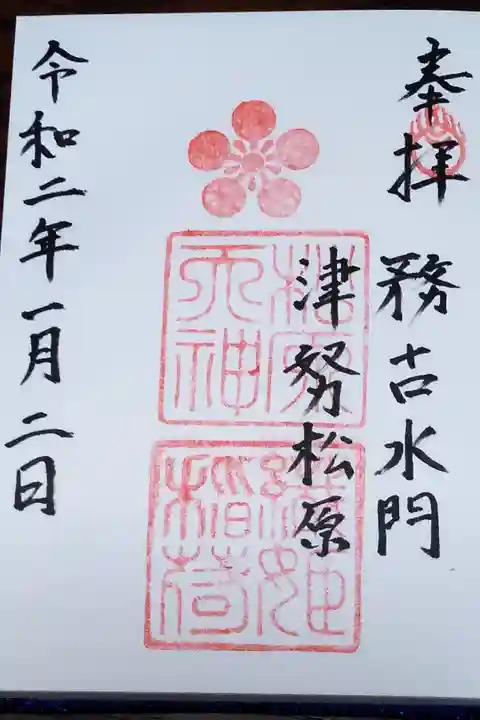 奉拝
務古水門
津努松原
松原
天神
織姫
稲荷
令和二年一月二日